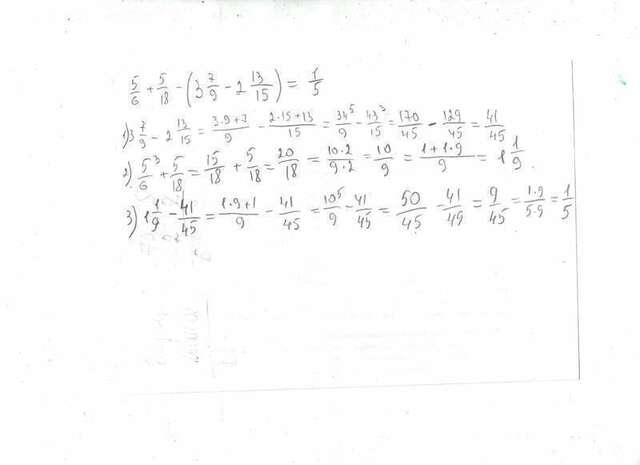 5/6 + 5/18 - (3 7/9 - 2 13/15) = 1/5
1) 3 7/9 - 2 13/15 = (3·9+7)/9 - (2·15+13)/15 = 34⁵/9 - 43³/15 = 170/45 - 129/45 = 41/45
2) 5³/6 + 5/18 = 15/18 + 5/18 = 20/18 = (10·2)/(9·2) = 10/9 = (1+1·9)/9 = 1 1/9.
3) 1 1/9 - 41/45 = (1·9+1)/9 - 41/45 = 10⁵/9 - 41/45 = 50/45 - 41/45 = 9/45 = (1·9)/(5·9) = 1/5